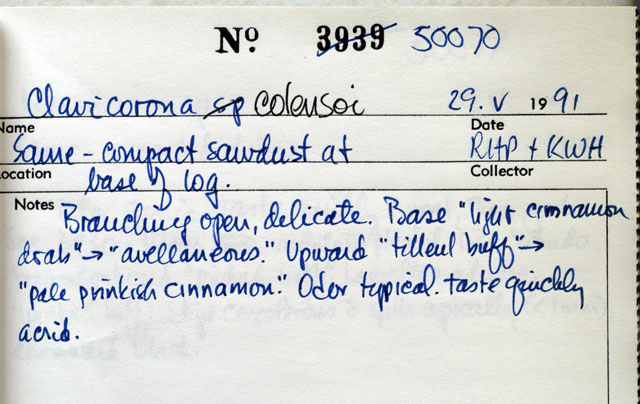 Nº 3939 50070
Clavicorona sp colensoi 29. V 1991
Name Date
Same - compact sawdust at RHP + KWH
Location Collector
base of log.
Notes Branching open, delicate. Base "light cinnamon
drab" → "avellaneous." Upward "tilleul buff" →
"pale pinkish cinnamon." Odor typical. taste quickly
acrid.